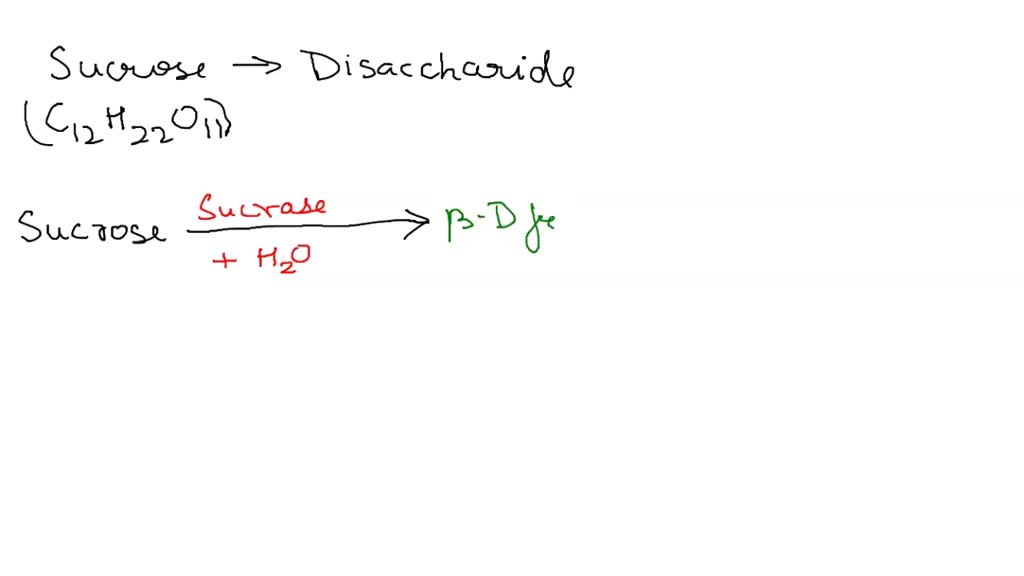 Sucrose → Disaccharide
(C12H22O11)
Sucrase
Sucrose → β-D
+ H2O